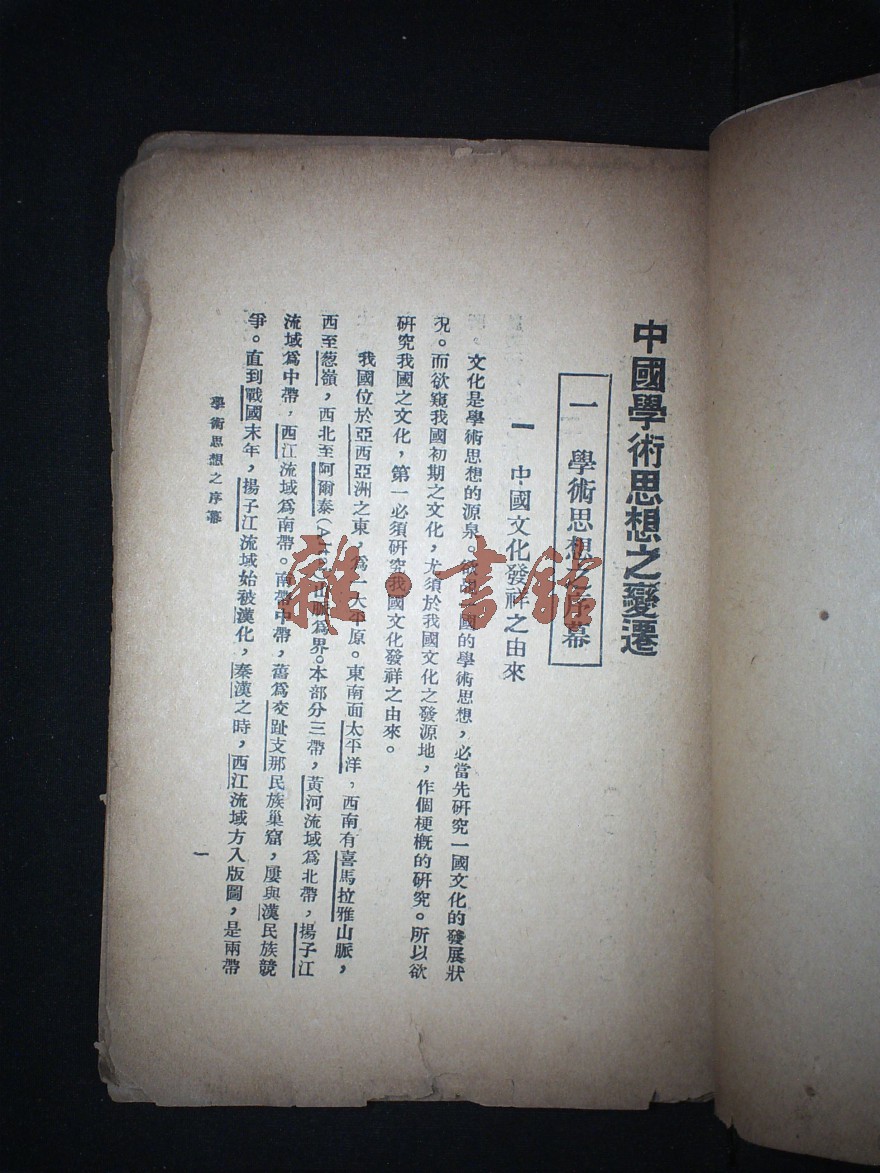 中國學術思想之變遷
一 學術思想之序幕
一 中國文化發祥之由來
文化是學術思想的源泉。欲窺一國的學術思想，必當先研究一國文化的發展狀
況。而欲窺我國初期之文化，尤須於我國文化之發源地，作個梗概的研究。所以欲
研究我國之文化，第一必須研究我國文化發祥之由來。
我國位於亞西亞洲之東，為一大平原。東南面太平洋，西南有喜馬拉雅山脈，
西至葱嶺，西北至阿爾泰(A山脈為界。本部分三帶，黃河流域為北帶，揚子江
流域為中帶，西江流域為南帶。南帶中帶，舊為交趾支那民族巢窟，屢與漢民族競
爭。直到戰國末年，揚子江流域始被漢化，秦漢之時，西江流域方入版圖，是兩帶
學術思想之序幕
一
雜·書館